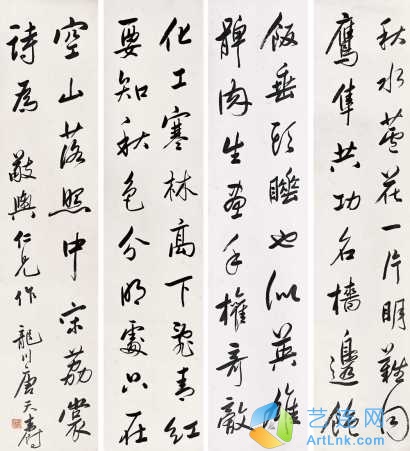 秋水蘆花一片明難同
鷹隼共功名檣邊飽
飯垂頭睡也似英雄
髀肉生畫手權奇敵
化工寒林高下亂青紅
要知秋色分明處只在
空山落照中宋荔裳
詩為 輿仁兄作 龍川唐天
艺连网
ArtLink.com